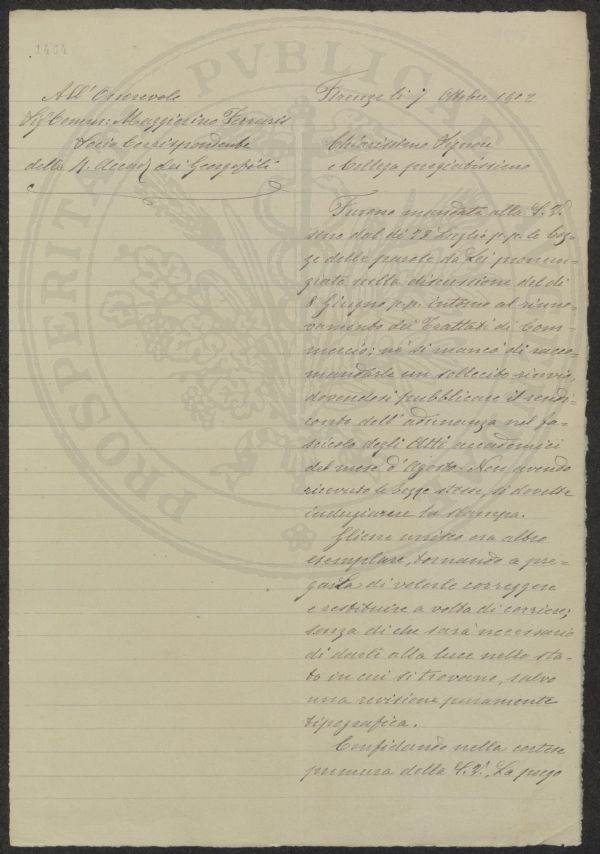 1404
PROSPERITATI PVBLICAE
All'Onorevole
Sig.r Comm: Maggiorino Ferraris
Socio Corrispondente
della R. Accad. dei Georgofili
Firenze li 7 Ottobre 1902
Chiarissimo Signore
e Collega pregiatissimo
Furono mandate alla S. V.
sino dal dì 23 Luglio p. p. le boz-
ze delle parole da Lei pronun-
ziate nella discussione del dì
8 Giugno p. p. intorno al rinno-
vamento dei Trattati di Com-
mercio; nè si mancò di racco-
mandarle un sollecito rinvio,
dovendosi pubblicare il rendi-
conto dell'adunanza nel fa-
scicolo degli Atti accademici
del mese d'Agosto. Non avendo
ricevuto le bozze stesse, si dovette
indugiare la stampa.
Gliene unisco ora altro
esemplare, tornando a pre-
garLa di volerle correggere
e restituire a volta di corriere;
senza di che sarà necessario
di darle alla luce nello sta-
to in cui si trovano, salvo
una revisione puramente
tipografica.
Confidando nella cortese
premura della S. V., La prego